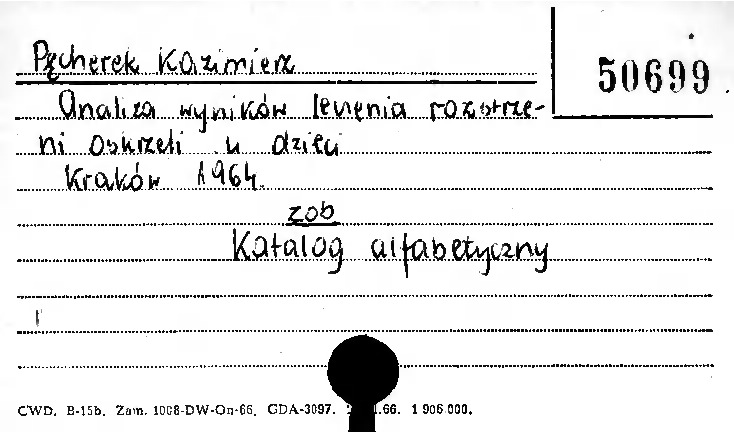 Pęcherek Kazimierz
50699
Analiza wyników leczenia rozstrze-
ni oskrzeli u dzieci
Kraków 1964.
zob
Katalog alfabetyczny
CWD. B-15b. Zam. 1008-DW-On-66. GDA-3097. .66. 1 906 000.